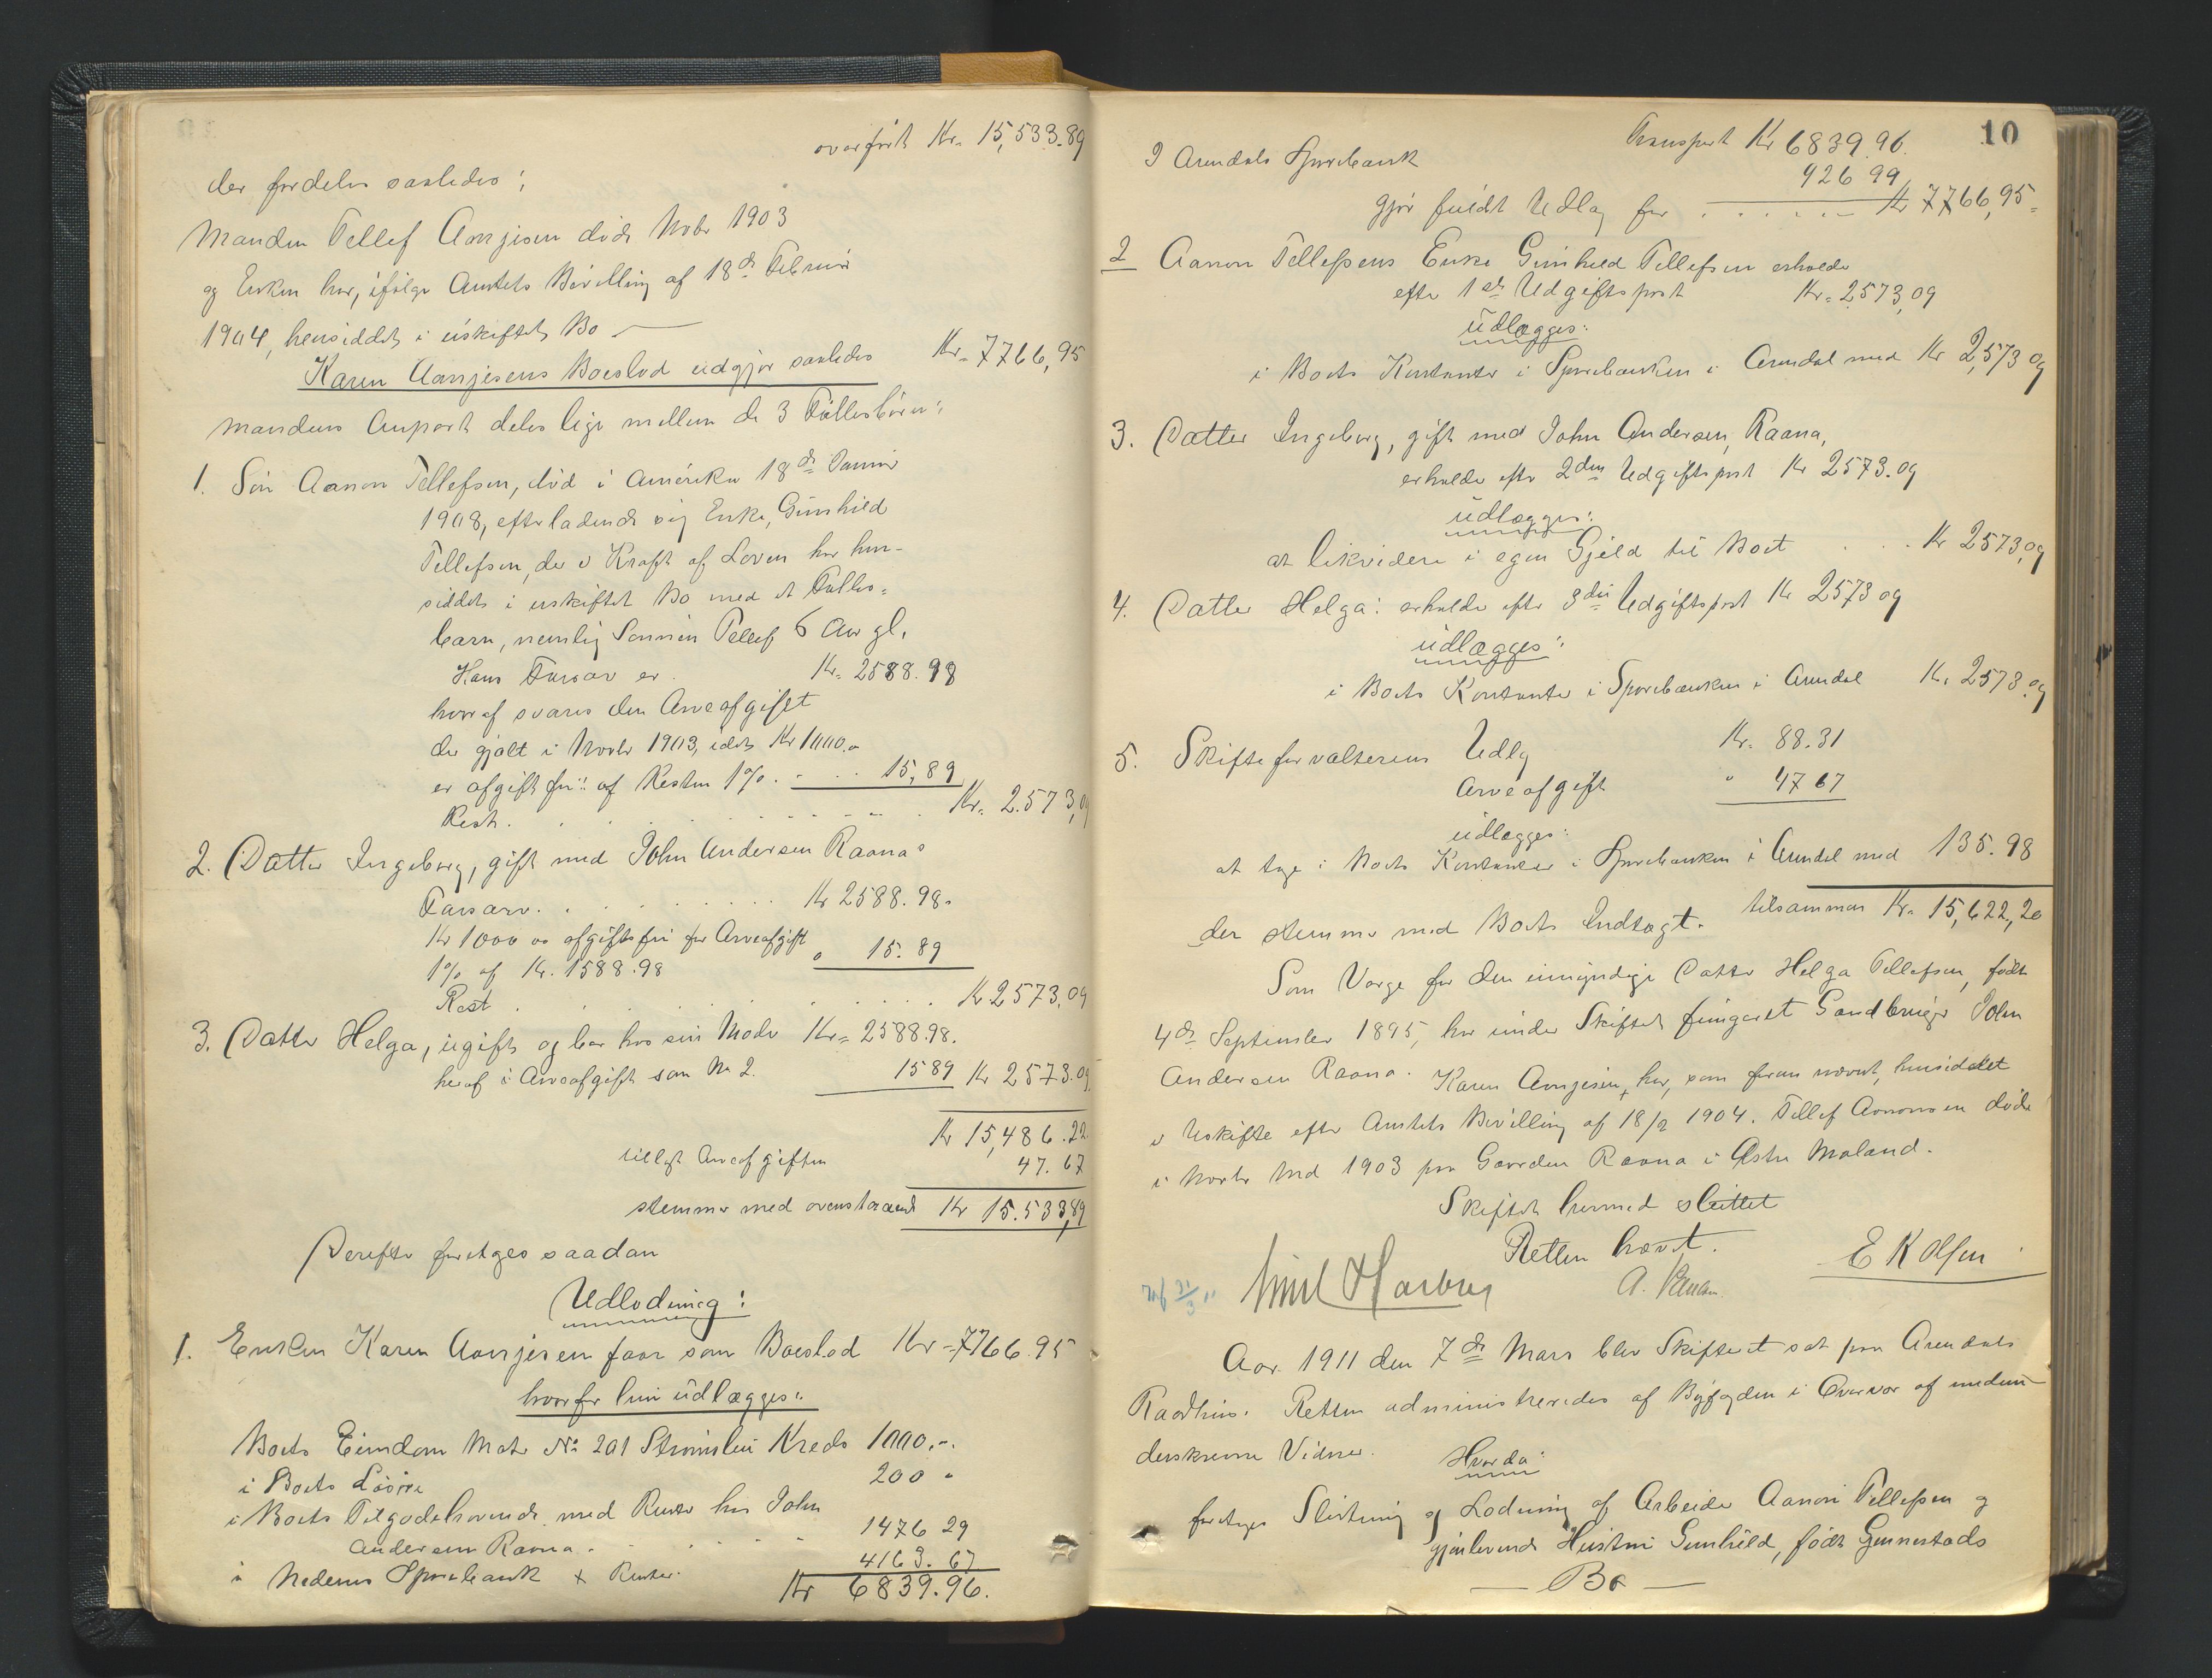 overført Kr. 15,533.89
der fordeles saaledes:
Manden Tellef Aanjesen døde Novbr 1903
og Enken har, ifølge Amtets Bevilling af 18de Februar
1904, hensiddet i uskiftet Bo
Karen Aanjesens Boeslod udgjør saaledes Kr. 7766,95
Mandens Anpart deles lige mellem de 3 Fællesbørn:
1. Søn Aanon Tellefsen, død i Amerika 18de Januar
1908, efterladende sig Enke, Gunhild
Tellefsen, der i Kraft af Loven har hen-
siddet i uskiftet Bo med et Fælles-
barn, nemlig Sønnen Tellef 6 Aar gl.
Hans Farsarv er. Kr. 2588.98
hvoraf svares den Arveafgift
der gjaldt i Novbr 1903, idet Kr 1000.00
er afgiftsfri: af Resten 1% . . . . 15,89
Rest. . . . . . . . . . Kr. 2.573,09
2. Datter Ingeborg, gift med John Andersen Raanas
Farsarv. . . . . . . . . Kr 2588.98.
Kr 1000 00 afgiftsfri for Arveafgift
1% af Kr. 1588.98 " 15.89
Rest . . . . . . . . . . Kr 2573,09
3. Datter Helga, ugift og bor hos sin Moder Kr. 2588.98.
heraf i Arveafgift som No 2. 15 89 Kr 2573.09
Kr 15,486.22
tillagt Arveafgiften 47.67
stemmer med ovenstaaende Kr 15.533,89
Derefter foretages saadan
Udlodning:
1. Enken Karen Aanjesen faar som Boeslod Kr. 7766.95
hvorfor hun udlægges:
Boets Eiendom Matr No 201 Strømsbu Kreds 1000.-.
i Boets Løsøre 200 "
i Boets Tilgodehavende med Renter hos John
Andersen Raana. . . . . . 1476 29
i Nedenes Sparebank + Renter. 4163.67
Kr 6839.96.
10
Transport Kr 6839.96.
I Arendals Sparebank 926 99
gjør fuldt Udlæg for . . . . . . Kr 7766,95
2 Aanon Tellefsens Enke Gunhild Tellefsen erholder
efter 1ste Udgiftspost Kr. 2573,09
udlægges:
i Boets Kontanter i Sparebanken i Arendal med Kr 2,573 09
3. Datter Ingeborg, gift med John Andersen, Raana,
erholder efter 2den Udgiftspost Kr 2573.09
udlægges:
at likvidere i egen Gjeld til Boet . . . Kr 2573,09
4. Datter Helga: erholder efter 3die Udgiftspost Kr 2573 09
udlægges:
i Boets Kontanter i Sparebanken i Arendal Kr. 2573.09
5. Skifteforvalterens Udlæg Kr. 88.31
Arveafgift " 47 67
udlægges:
at tage i Boets Kontanter i Sparebanken i Arendal med 135.98
tilsammen Kr. 15,622,20
der stemmer med Boets Indtægt.
Som Værge for den umyndige Datter Helga Tellefsen, født
4de September 1895, har under Skiftet fungeret Gaardbruger John
Andersen Raana. Karen Aanjesen, har, som foran nævnt, hensiddet
i Uskifte efter Amtets Bevilling af 18/2 1904. Tellef Aanonsen døde
i Novbr Md 1903 paa Gaarden Raana i Østre Moland.
Skiftet hermed sluttet
Retten hævet.
E K Olsen
21/3 11
Aar 1911 den 7de Mars blev Skifteret sat paa Arendals
Raadhus. Retten administreredes af Byfogden i Overvær af under-
derskrevne Vidner.
Hvorda:
foretages Slutning og Lodning af Arbeider Aanon Tellefsen og
gjenlevende Hustru Gunhild, født Gunnestads
— Bo —